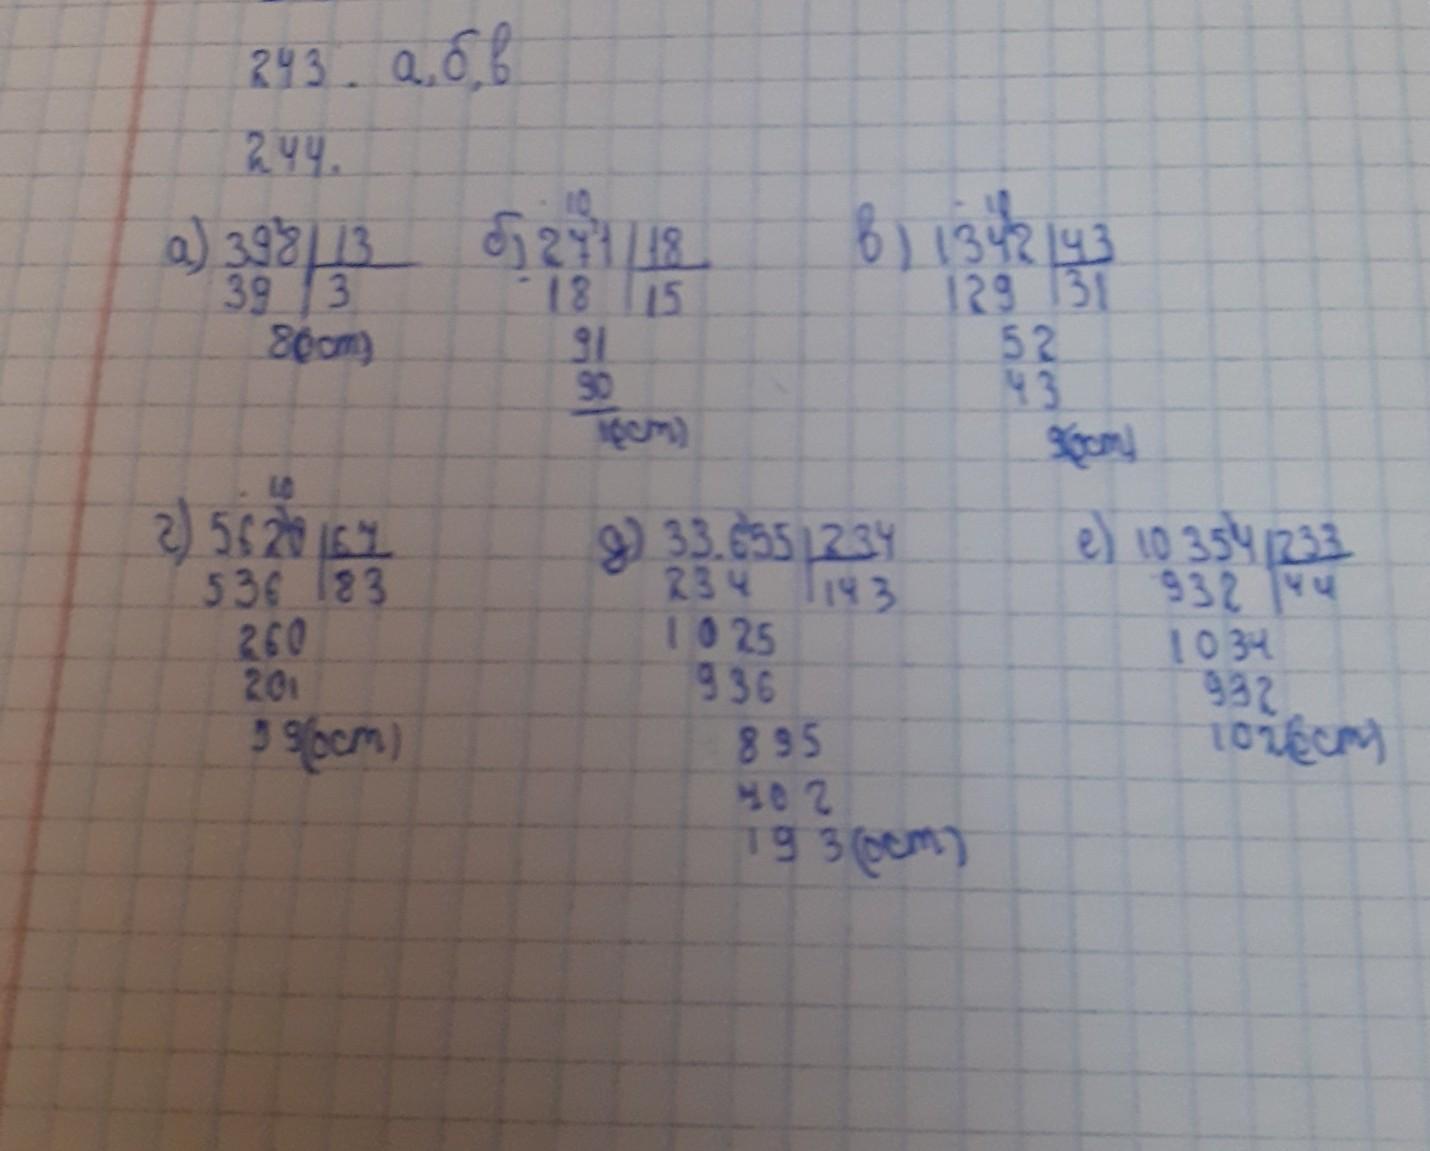 243. а,б,в
244.
а) 398 | 13
39 | 3
8(ост)
б) 271 | 18
- 18 | 15
91
90
1(ост)
в) 1342 | 43
129 | 31
52
43
9(ост)
г) 5620 | 67
536 | 83
260
201
99(ост)
д) 33.655 | 234
234 | 143
1025
936
895
702
193(ост)
е) 10354 | 233
932 | 44
1034
932
102(ост)